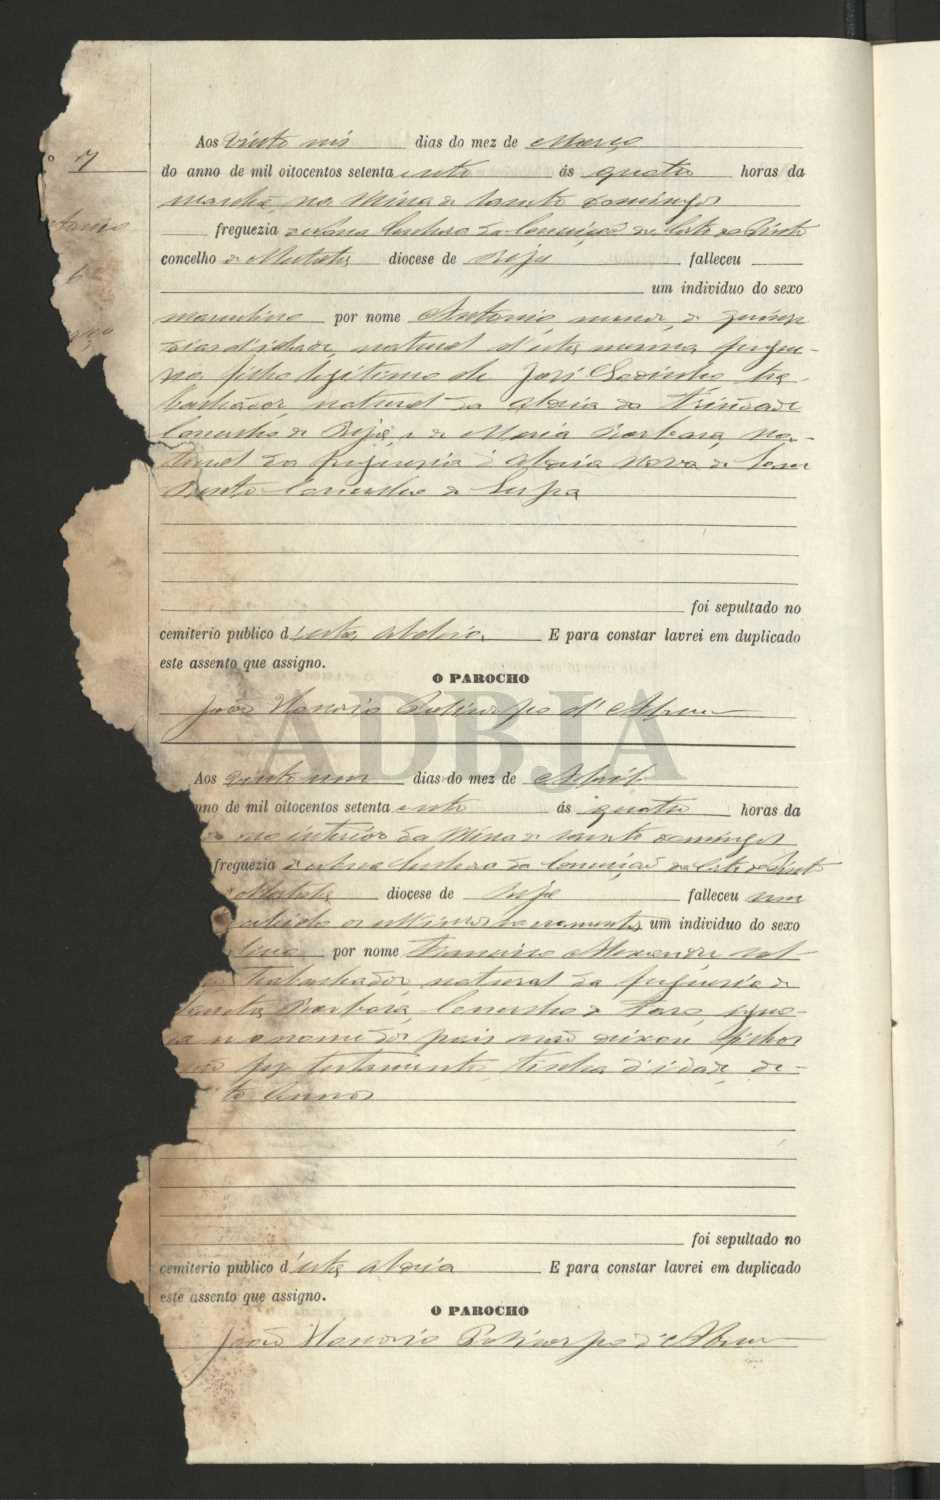 7
Aos vinte seis dias do mez de Março
do anno de mil oitocentos setenta e oito ás quatro horas da
manhã, na Mina de Santo Domingos
freguezia de Nossa Senhora da Conceição de Corte do Pinto
concelho de Mertola diocese de Beja falleceu
um individuo do sexo
masculino por nome Antonio, menor, de quinze
dias d'idade, natural d'esta mesma fregue-
zia, filho legitimo de José Godinho tra-
balhador, natural da Aldeia da Trindade
Concelho de Beja, e de Maria Barbara, na-
tural da freguezia d'Aldeia Nova de Sam
Bento Concelho de Serpa
foi sepultado no
cemiterio publico d'esta Aldeia. E para constar lavrei em duplicado
este assento que assigno.
O PAROCHO
João Honorio Policarpo d'Abreu
ADBJA
Aos vinte um dias do mez de Abril
anno de mil oitocentos setenta e oito ás quatro horas da
no interior da Mina de Santo Domingos
freguezia de Nossa Senhora da Conceição de Corte do Pinto
Mertola diocese de Beja falleceu sem
recebido os ultimos sacramentos um individuo do sexo
por nome Francisco Alexandre sol-
trabalhador, natural da freguezia de
Santa Barbara, Concelho de Faro, igno-
ra o nome dos pais não deixou filhos
não fez testamento tinha d'idade de-
to annos
foi sepultado no
cemiterio publico d'esta Aldeia E para constar lavrei em duplicado
este assento que assigno.
O PAROCHO
João Honorio Policarpo d'Abreu